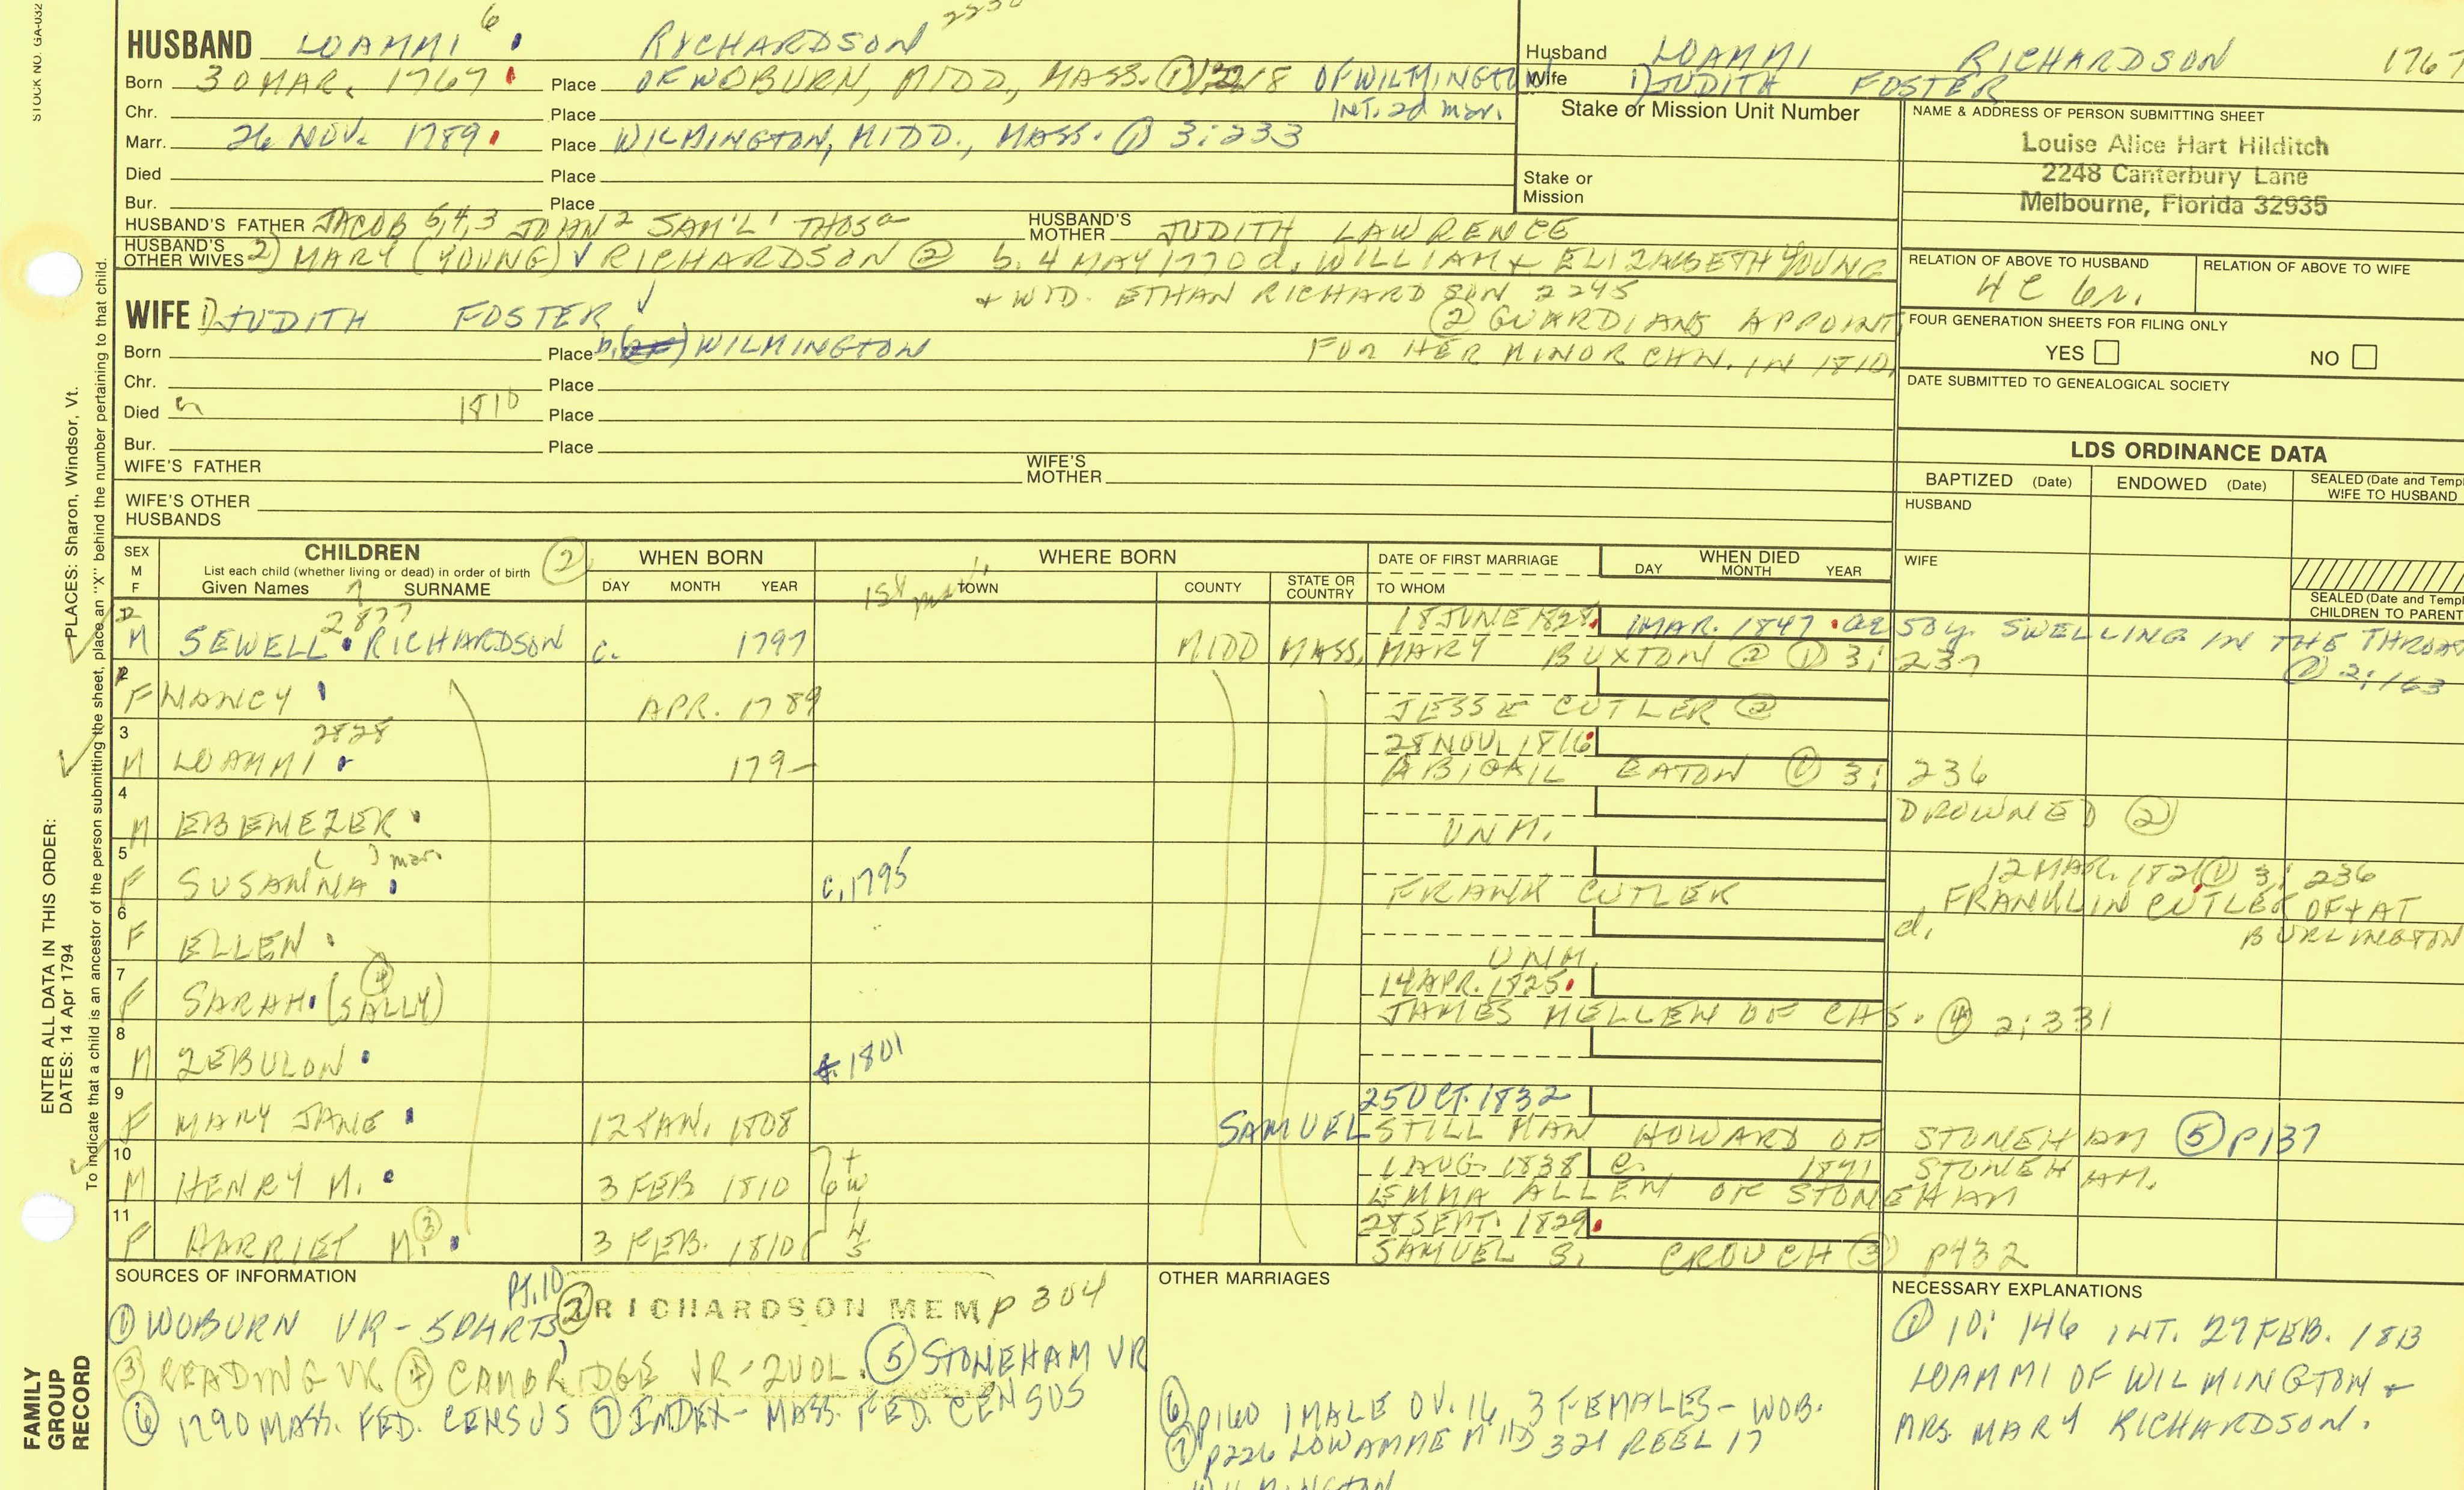 STOCK NO. GA-032
HUSBAND LOAMMI 6 RICHARDSON
Born 30 MAR. 1767 Place OF WOBURN, MIDD., MASS. ① OF WILMINGTON
Chr. Place INT. 2d mar.
Marr. 26 NOV. 1789 Place WILMINGTON, MIDD., MASS. ① 3:233
Died Place
Bur. Place
HUSBAND'S FATHER JACOB 5,4,3 JOHN 2 SAM'L 1 THOS a HUSBAND'S MOTHER JUDITH LAWRENCE
HUSBAND'S OTHER WIVES 2) MARY (YOUNG) ✓ RICHARDSON ② b. 4 MAY 1770 d. WILLIAM + ELIZABETH YOUNG
+ WID. ETHAN RICHARDSON 2245
WIFE 1) JUDITH FOSTER ✓ ② GUARDIANS APPOINT
Born Place b. WILMINGTON FOR HER MINOR CHN. IN 1810
Chr. Place
Died 1810 Place
Bur. Place
WIFE'S FATHER WIFE'S MOTHER
WIFE'S OTHER HUSBANDS
Husband LOAMMI RICHARDSON 1767
Wife 1) JUDITH FOSTER
Stake or Mission Unit Number
Stake or Mission
NAME & ADDRESS OF PERSON SUBMITTING SHEET
Louise Alice Hart Hilditch
2248 Canterbury Lane
Melbourne, Florida 32935
RELATION OF ABOVE TO HUSBAND RELATION OF ABOVE TO WIFE
4 C 6r.
FOUR GENERATION SHEETS FOR FILING ONLY
YES NO
DATE SUBMITTED TO GENEALOGICAL SOCIETY
LDS ORDINANCE DATA
BAPTIZED (Date) ENDOWED (Date) SEALED (Date and Temp
WIFE TO HUSBAND
HUSBAND
WIFE
SEALED (Date and Temp
CHILDREN TO PARENT
SEX M F CHILDREN ② WHEN BORN WHERE BORN DATE OF FIRST MARRIAGE WHEN DIED
List each child (whether living or dead) in order of birth
Given Names SURNAME DAY MONTH YEAR 1st TOWN COUNTY STATE OR COUNTRY TO WHOM DAY MONTH YEAR
2877 18 JUNE 1828 1 MAR. 1847 ae 50y. SWELLING IN THE THROAT
M SEWELL RICHARDSON c. 1797 MIDD MASS. MARY BUXTON ② ① 3: 237 ① 2:163
F NANCY APR. 1789 JESSE CUTLER ②
3 2828 28 NOV. 1816
M LOAMMI 179- ABIGAIL EATON ① 3: 236
4
M EBENEZER UNM. DROWNED ②
5 ( ) mar. 12 MAR. 1821 ① 3: 236
F SUSANNA c. 1795 FRANK CUTLER FRANKLIN CUTLER OF + AT BURLINGTON
6 d.
F ELLEN UNM.
7 ④ 14 APR. 1825
F SARAH (SALLY) JAMES MELLEN OF CHS. ④ 2:331
8
M ZEBULON 1801
9 25 OCT. 1832
F MARY JANE 12 JAN. 1808 SAMUEL STILLMAN HOWARD OF STONEHAM ⑤ P137
10 1 AUG. 1838 1841 STONEHAM.
M HENRY M. 3 FEB 1810 twins EMMA ALLEN OF STONEHAM
11 ③ 28 SEPT. 1829
F HARRIET M. 3 FEB. 1810 SAMUEL S. CROUCH ③ P432
SOURCES OF INFORMATION
PT. 10
① WOBURN VR - 5 PARTS ② RICHARDSON MEM P 304
③ READING VR ④ CAMBRIDGE VR - 2 VOL. ⑤ STONEHAM VR
⑥ 1790 MASS. FED. CENSUS ⑦ INDEX - MASS. FED. CENSUS
OTHER MARRIAGES
⑥ P160 1 MALE OV. 16, 3 FEMALES - WOB.
⑦ P226 LOWAMME MIDD 321 REEL 17
WILMINGTON
NECESSARY EXPLANATIONS
① 10: 146 INT. 27 FEB. 1813
LOAMMI OF WILMINGTON +
MRS. MARY RICHARDSON.
PLACES: Sharon, Windsor, Vt.
ENTER ALL DATA IN THIS ORDER:
DATES: 14 Apr 1794
To indicate that a child is an ancestor of the person submitting the sheet, place an "X" behind the number pertaining to that child.
FAMILY
GROUP
RECORD